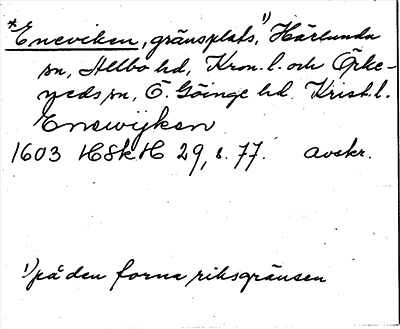 *Eneviken, gränsplats,¹) Härlunda
sn, Allbo hd, Kron. l. och Örke-
neds sn, Ö. Göinge hd. Krist. l.
Enewijken
1603 HSkH 29, s. 77. avskr.
¹) på den forna riksgränsen